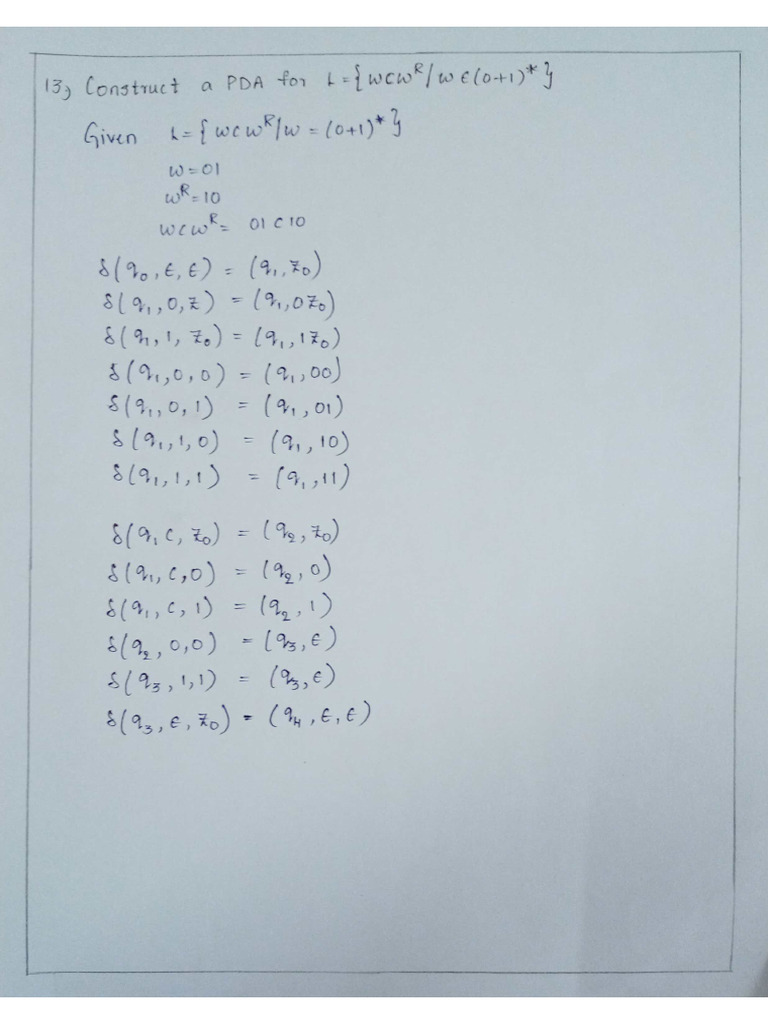 13) Construct a PDA for L={wcwᴿ/w ∈ (0+1)*}
Given L={wcwᴿ/w = (0+1)*}
w=01
wᴿ=10
wcwᴿ= 01 c 10
δ(q₀, ε, ε) = (q₁, z₀)
δ(q₁, 0, z) = (q₁, 0z₀)
δ(q₁, 1, z₀) = (q₁, 1z₀)
δ(q₁, 0, 0) = (q₁, 00)
δ(q₁, 0, 1) = (q₁, 01)
δ(q₁, 1, 0) = (q₁, 10)
δ(q₁, 1, 1) = (q₁, 11)
δ(q₁ c, z₀) = (q₂, z₀)
δ(q₁, c, 0) = (q₂, 0)
δ(q₁, c, 1) = (q₂, 1)
δ(q₂, 0, 0) = (q₃, ε)
δ(q₃, 1, 1) = (q₃, ε)
δ(q₃, ε, z₀) = (q₄, ε, ε)